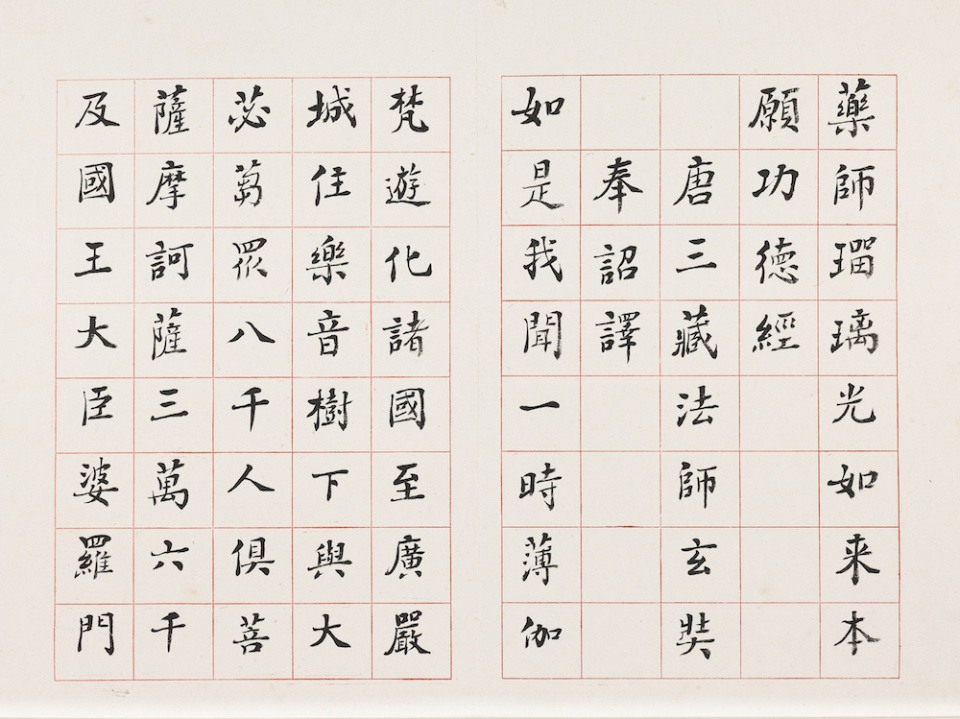 藥師瑠璃光如来本
願功德經
唐三藏法師玄奘
奉詔譯
如是我聞一時薄伽
梵遊化諸國至廣嚴
城住樂音樹下與大
苾蒭眾八千人俱菩
薩摩訶薩三萬六千
及國王大臣婆羅門